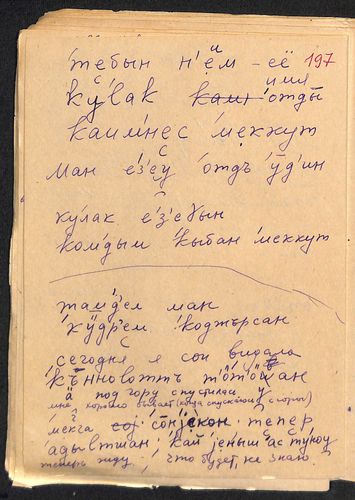 тебын н'ем – её 197
имя
кӯлак отды
каимнес меккут
ман ез'еӯ отдъ ӯд'ин
кулак ез'еɣын
комдым кыбан меккут
там'дел ман
кӱдр'ем коджърсан
сегодня я сон видала
къ̄нновоттъ тӧтӧ
под гору спустилась
мне хорошо бывает (когда спускаюсь с горы)
мекга сон тепер
адывтиан кай еныш астукоу
теперь жду, что будет, не знаю